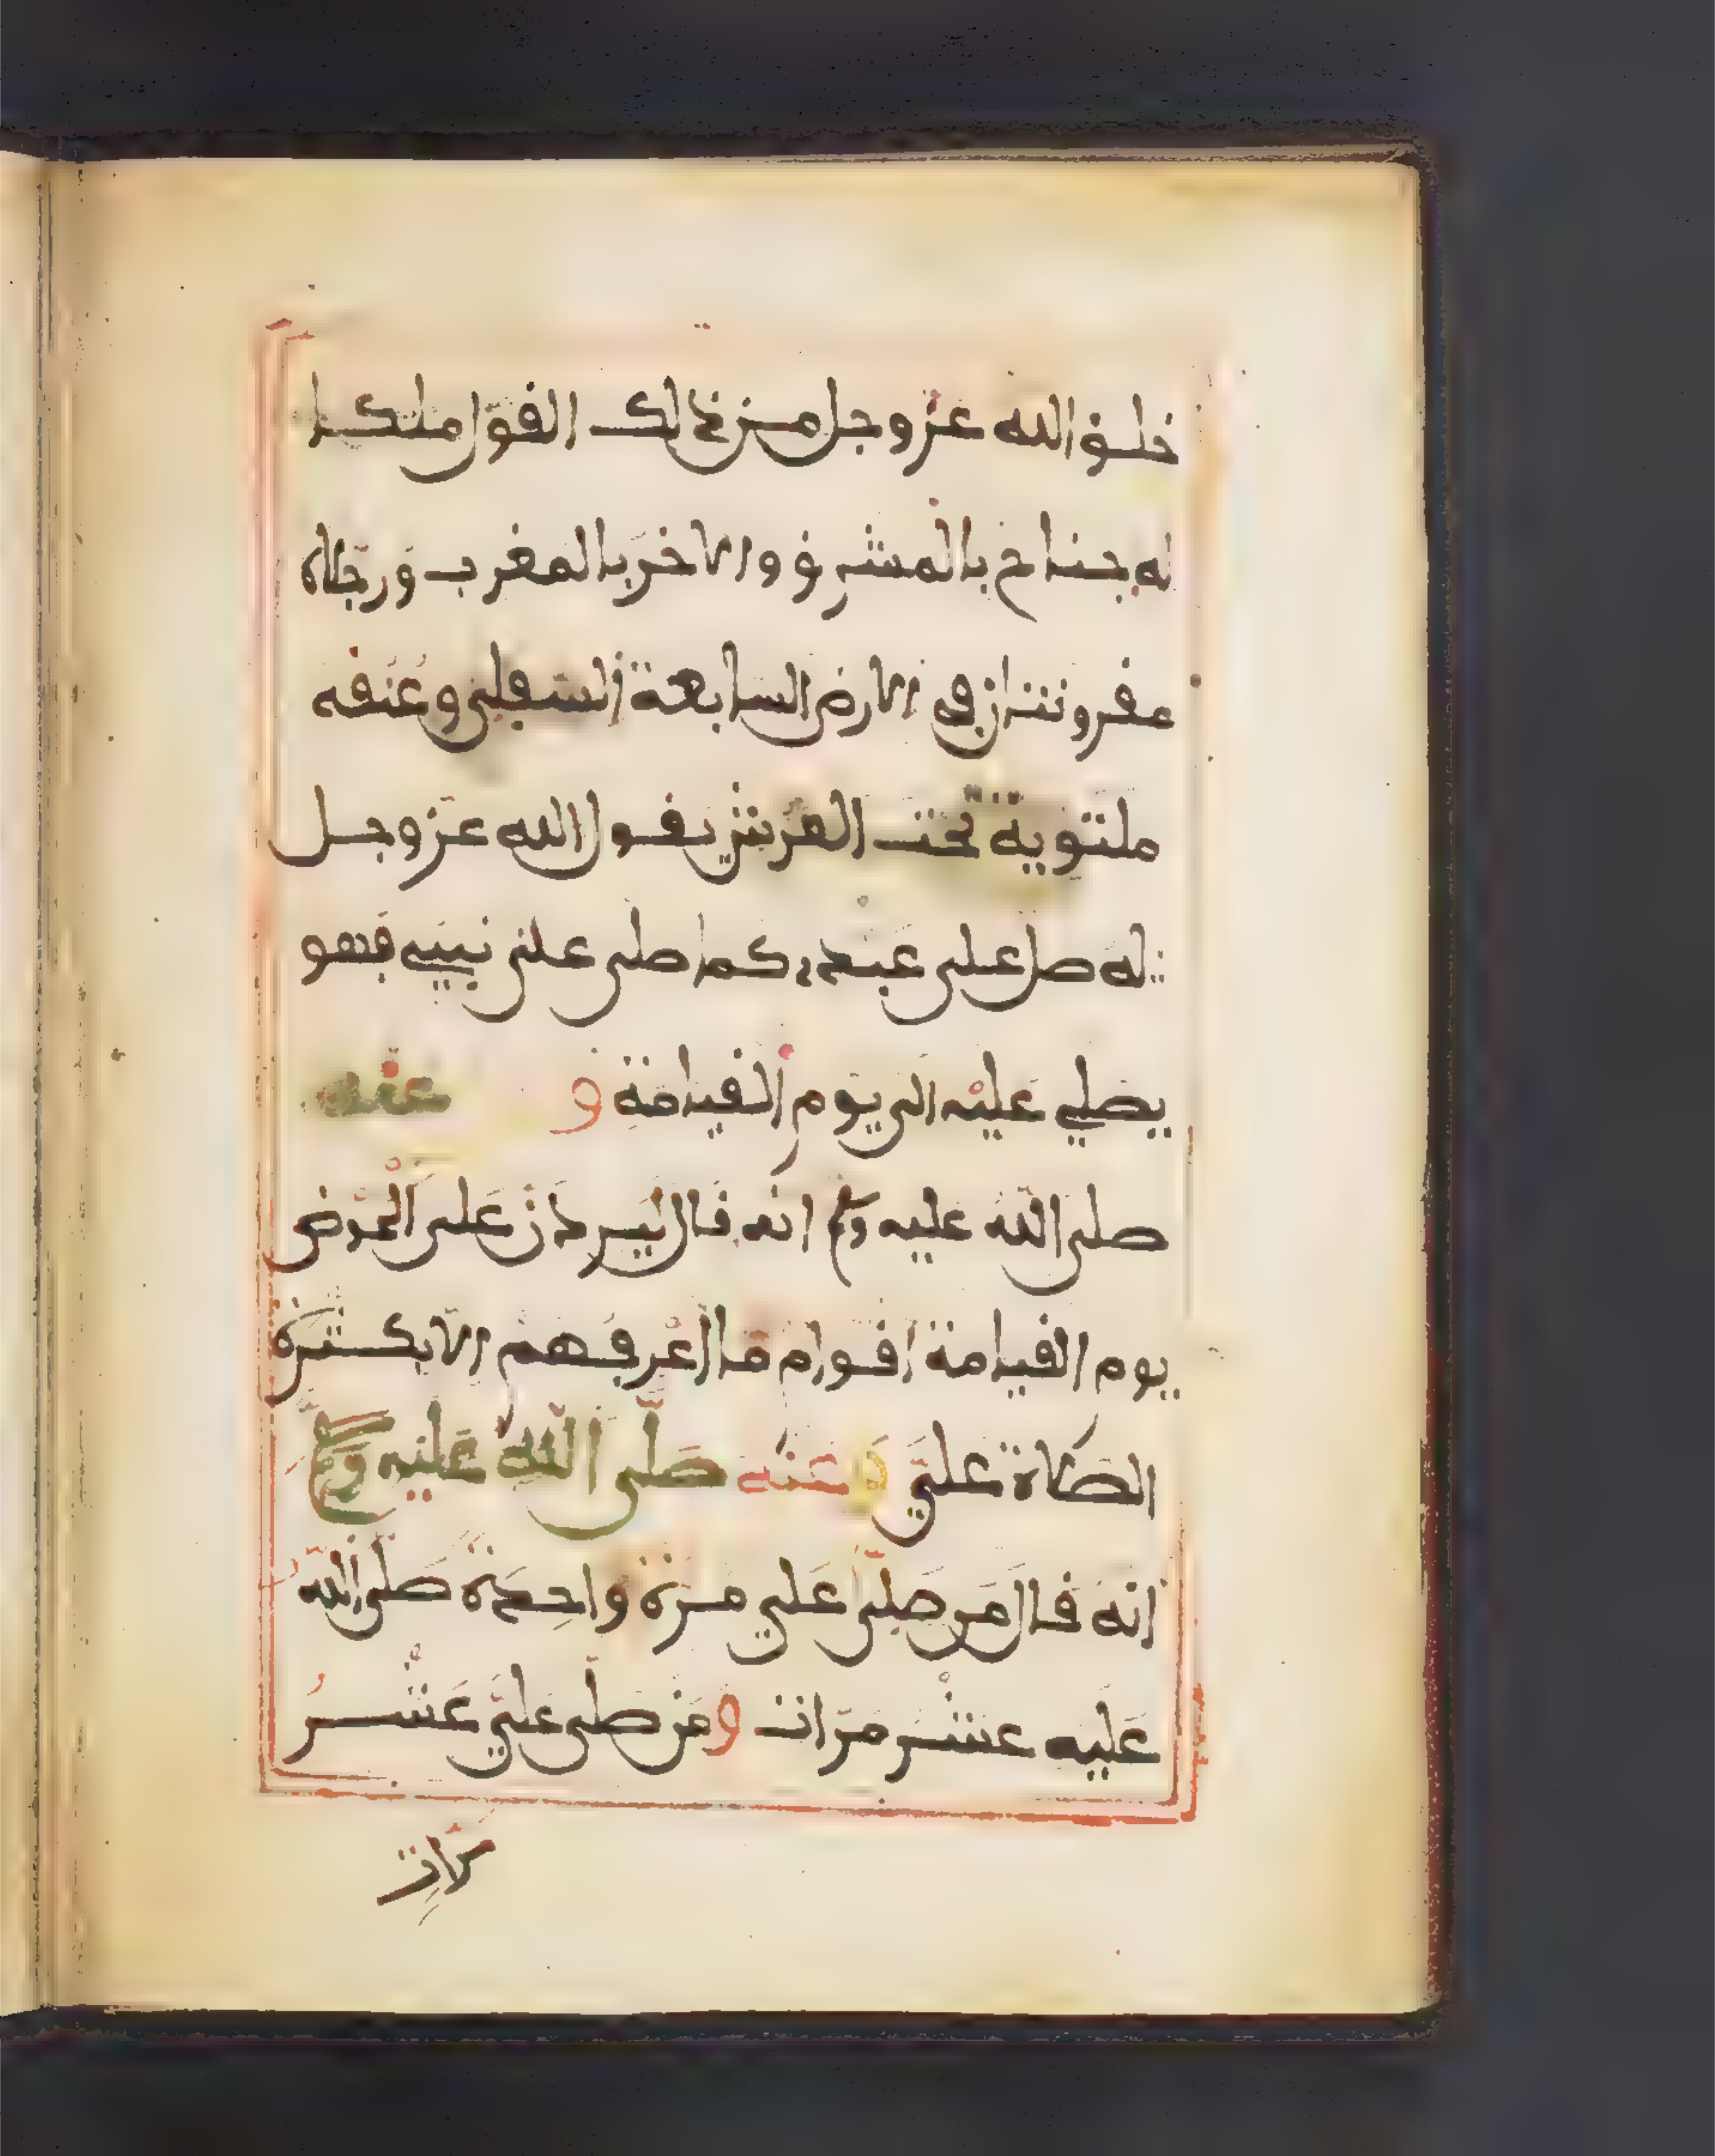 خلق الله عز وجل من ذالك القول ملكا
له جناح بالمشرق والاخر بالمغرب ورجلاه
مقرونتان في الارض السابعة السفلى وعنقه
ملتوية تحت العرش يقول الله عز وجل
له صل على عبدي كما صلى على نبيي فهو
يصلي عليه الى يوم القيامة و عنه
صلى الله عليه وسلم انه قال ليردن على الحوض
يوم القيامة اقوام ما اعرفهم الا بكثرة
الصلاة علي وعنه صلى الله عليه وسلم
انه قال من صلى علي مرة واحدة صلى الله
عليه عشر مرات ومن صلى علي عشر
مرات